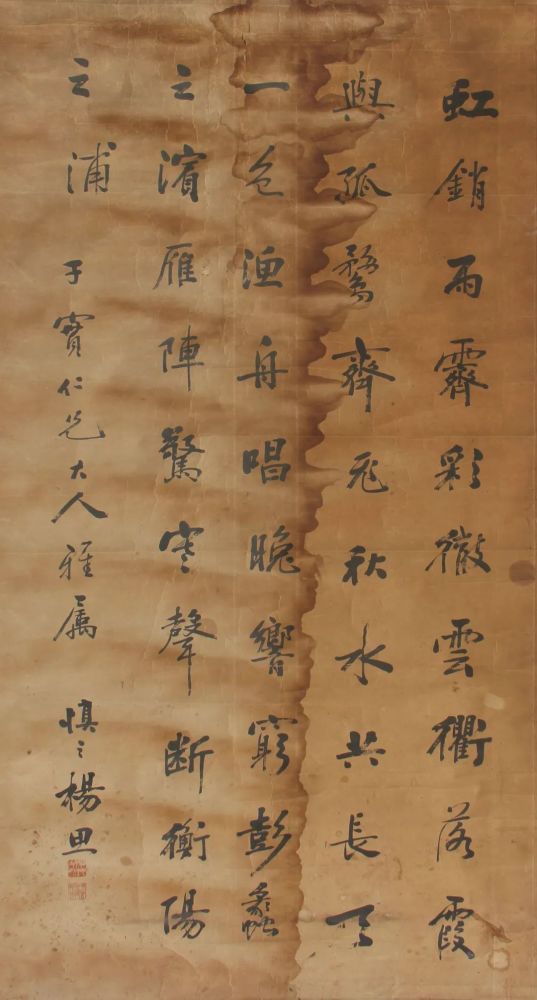 虹銷雨霽彩徹雲衢落霞
與孤鶩齊飛秋水共長天
一色漁舟唱晚響窮彭蠡
之濱雁陣驚寒聲断衡陽
之浦
于寶仁兄大人雅属 慎之楊思